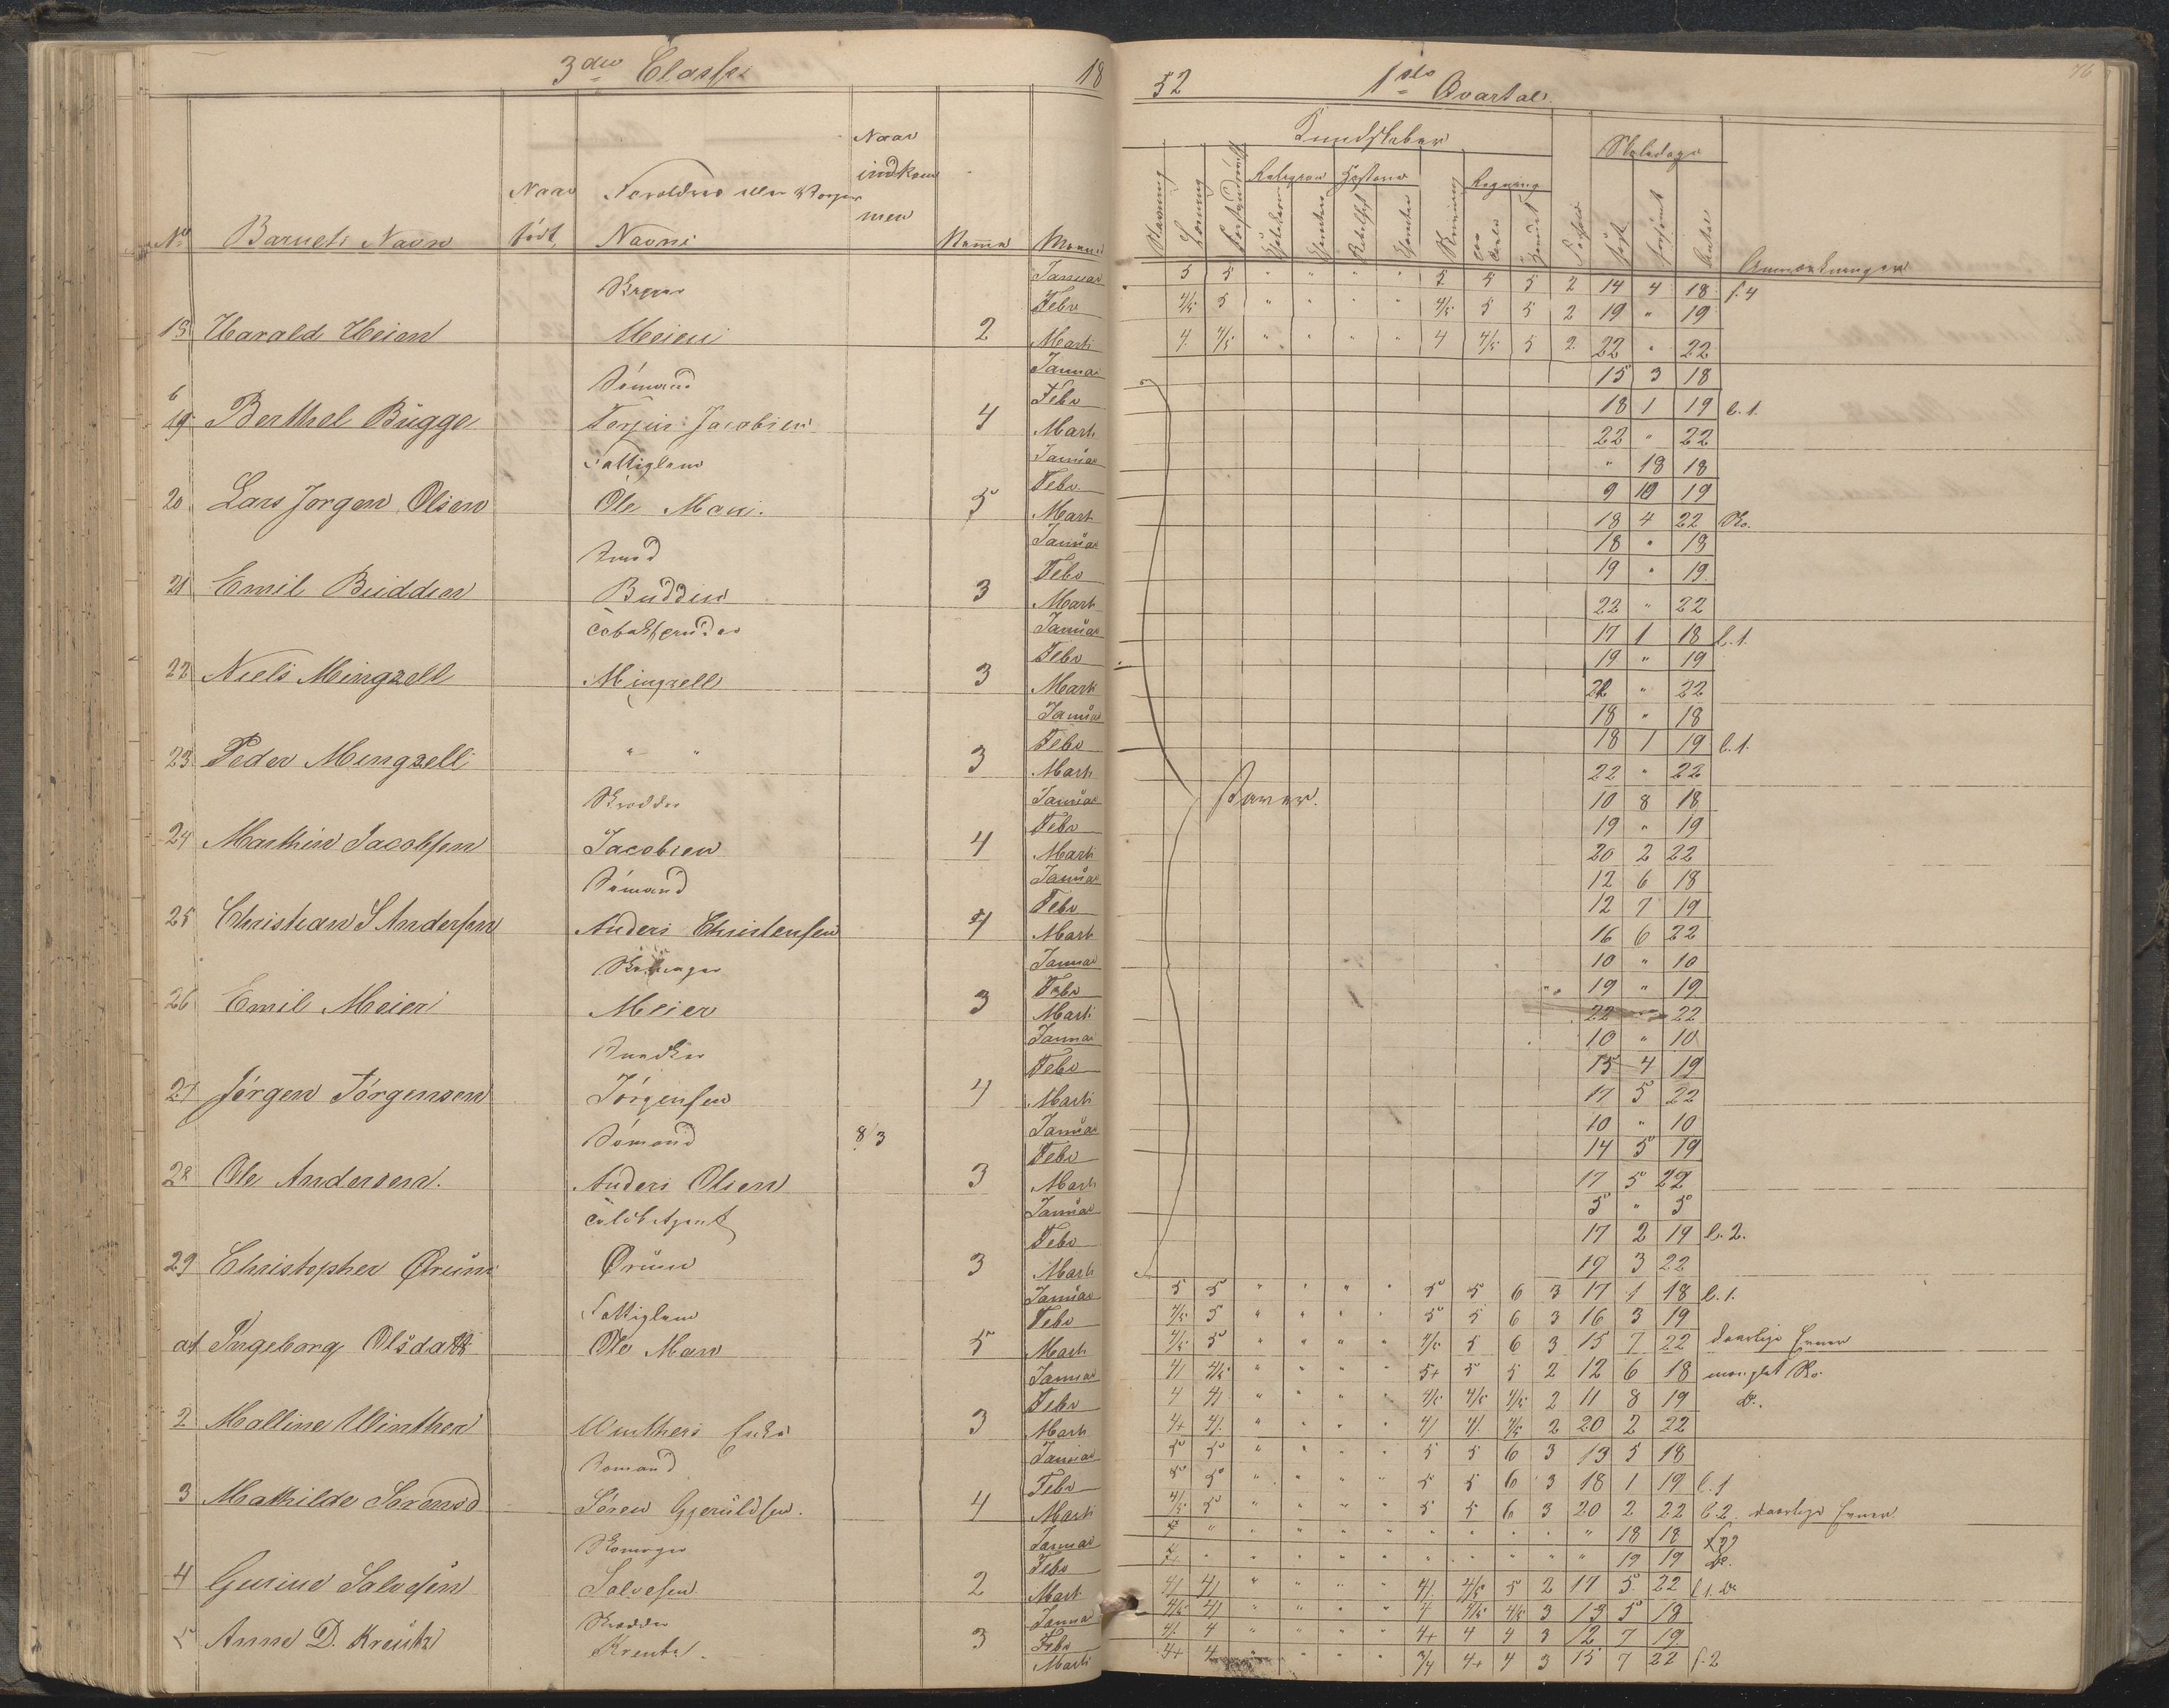 3die Classe 18
52 1ste Qvartal
76
No Barnets Navn
Naar født
Forældres eller
Navne
Naar indkommen
Maaned
Kundskaber
Skoledage
Religion Historie Regning
Anmærkninger
Januar 5 5 " " " " 5 5 5 2 14 4 18 f. 4
Febr 4/5 5 " " " " 4/5 5 5 2 19 " 19
18 Harald Heien Heien 2 Marts 4 4/5 " " " " 4 4/5 5 2 22 " 22
Sømand Januar 15 3 18
Febr 18 1 19 l. 1.
19 Berthel Bugge Terjus Jacobsen 4 Marts 22 " 22
Fattiglem Januar " 18 18
Febr 9 10 19
20 Lars Jørgen Olsen Ole Moe 5 Marts 18 4 22
Januar 18 " 18
Febr 19 " 19
21 Emil Budden Budden 3 Marts 22 " 22
Januar 17 1 18 l. 1.
Febr 19 " 19
22 Niels Mingzell Mingzell 3 Marts 22 " 22
Januar 18 " 18
Febr 18 1 19 l. 1.
23 Peder Mengzell " " 3 Marts 22 " 22
Januar 10 8 18
Febr 19 " 19
24 Marthin Jacobsen Jacobsen 4 Marts 20 2 22
Sømand Januar 12 6 18
Febr 12 7 19
25 Christian S Andersen Anders Christensen 4 Marts 16 6 22
Januar 10 " 10
Febr 19 " 19
26 Emil Meier Meier 3 Marts 22 " 22
Snedker Januar 10 " 10
Febr 15 4 19
27 Jørgen Jørgensen Jørgensen 4 Marts 17 5 22
Sømand 8/3 Januar 10 " 10
Febr 14 5 19
28 Ole Andersen Anders Olsen 3 Marts 17 5 22
Januar 5 " 5
Febr 17 2 19 l. 2.
29 Christopher Ørum Ørum 3 Marts 19 3 22
Januar 5 5 " " " " 5 5 6 3 17 1 18 l. 1.
Fattiglem Febr 4/5 5 " " " " 5 5 6 3 16 3 19
Ingeborg Olsdatt Ole Moe 5 Marts 4/5 5 " " " " 4/5 5 6 3 15 7 22 daarlige Evner
Januar 4 4/5 " " " " 5+ 5 5 2 12 6 18
Febr 4 4 " " " " 4/5 4/5 4/5 2 11 8 19
2 Malline Winther Winthers Enke 3 Marts 4+ 4 " " " " 4 4 4/5 2 20 2 22
Sømand Januar 5 5 " " " " 5 5 6 3 13 5 18
Febr 5 5 " " " " 5 5 6 3 18 1 19 l. 1
3 Mathilde Sørensd Søren Gjeruldsen 4 Marts 4/5 5 " " " " 5 5 6 3 20 2 22 l. 2. daarlige Evner
Januar " " " " " " " " " " " 18 18
Febr " " " " " " " " " " 19 19
4 Gurine Salvesen Salvesen 2 Marts 4 4 " " " " 4 4/5 5 2 17 5 22
Januar 4/5 4 " " " " 4 4/5 4/5 3 13 5 18
Febr 4 4 " " " " 4+ 4 4 3 12 7 19
5 Anne D. Kreutz Kreutz 3 Marts 4+ 4 " " " " 3/4 4+ 4 3 15 7 22 f. 2